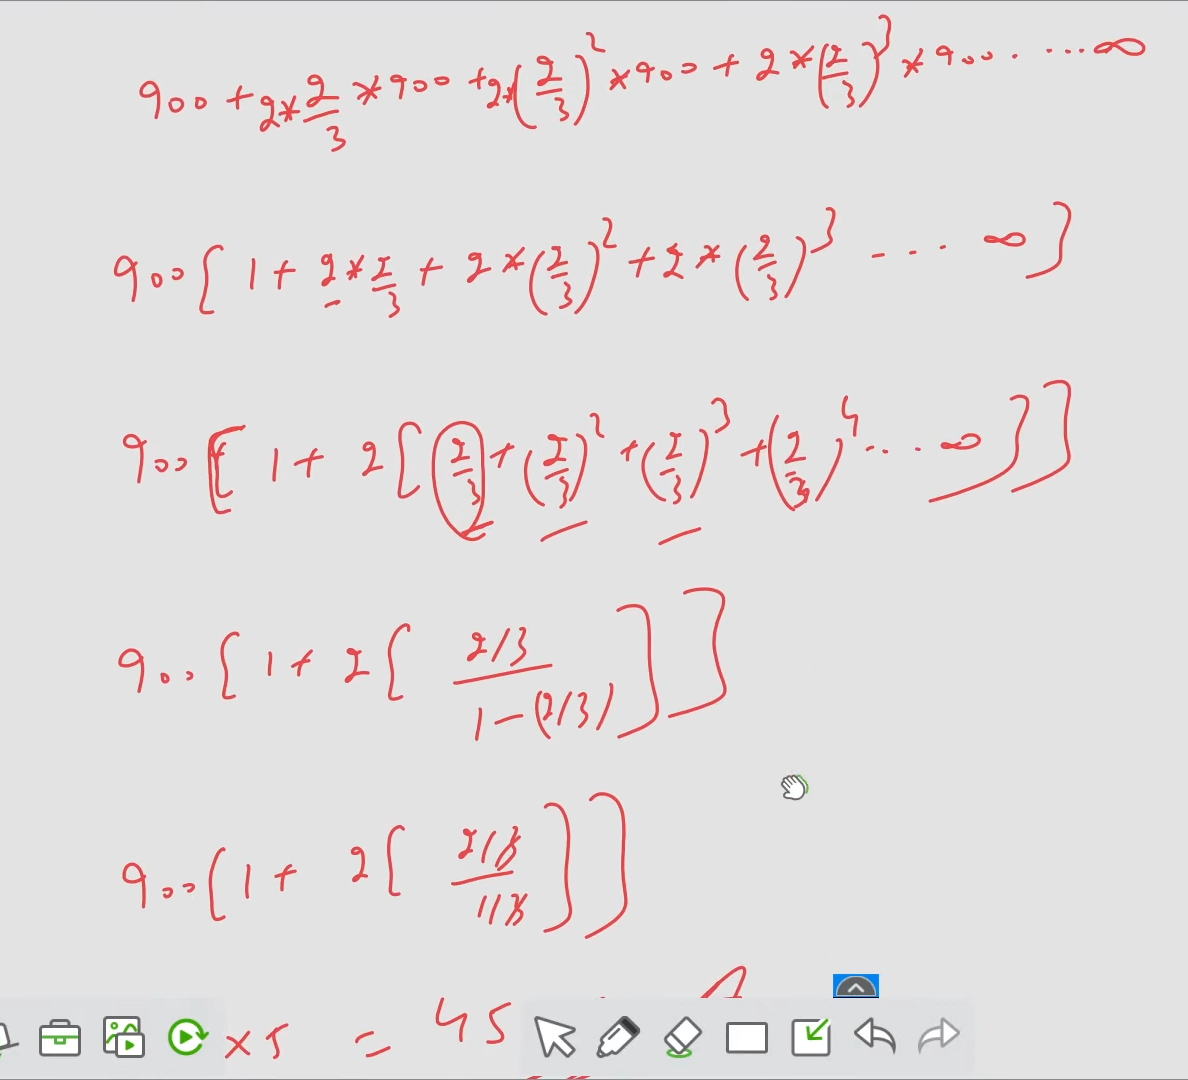 900 + 2*2/3 *900 + 2*(2/3)^2 *900 + 2*(2/3)^3 *900. ....∞
900[1 + 2*2/3 + 2*(2/3)^2 + 2*(2/3)^3 ---- ∞]
900[1 + 2[2/3 + (2/3)^2 + (2/3)^3 + (2/3)^4... ∞]]
900[1 + 2[(2/3)/(1-(2/3))]]
900[1 + 2[(2/3)/(1/3)]]
×5 = 45